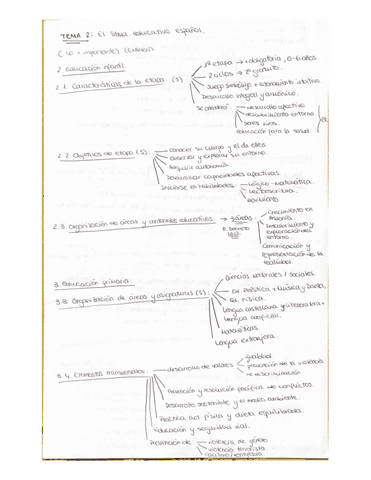 TEMA 2: El sitma educativo español.
(Lo + importante) (Examen)
2 educación infantil.
1ª etapa → obligatoria, 0-6 años.
2 ciclos → 2º gratuito
2.1. Características de la etapa. (5)
Juego simbólico +
Desarrollo integral y armónico.
Se atenderá
desarrollo afectivo
descubrimiento entorno
educación para la salud
2.2 Objetivos de etapa (5).
Conocer su cuerpo y el de otros
Observar y explorar su entorno.
Adquirir autonomía
Desarrollar capacidades afectivas.
Iniciarse en habilidades
lógico-matemática.
lectoescritura.
movimiento
2.3. Organización de áreas y contenidos educativos.
3 áreas
R. Decreto
Crecimiento en Armonía.
Descubrimiento y exploración del entorno.
Comunicación y representación de la realidad.
3. Educación primaria.
Ciencias naturales / sociales.
3.3. Organización de áreas y asignaturas (5):
Ed. Plástica + Música y Danza.
Ed. Física.
Lengua castellana y literatura +
Lengua cooficial.
Matemáticas
Lengua extranjera
3.4. Elementos transversales.
desarrollo de valores
igualdad
prevención de la violencia
no discriminación
Prevención y resolución pacífica de conflictos.
Desarrollo sostenible y el medio ambiente.
Práctica act. física y dieta equilibrada.
Educación y seguridad vial.
Prevención de
violencia de género
violencia terrorista
racismo/xenofobia